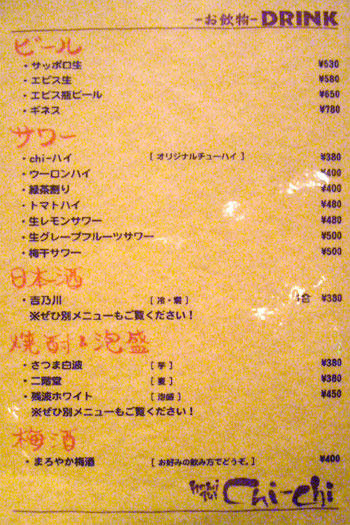 -お飲物- DRINK
ビール
・サッポロ生 ¥530
・エビス生 ¥580
・エビス瓶ビール ¥650
・ギネス ¥780
サワー
・chi-ハイ [ オリジナルチューハイ ] ¥380
・ウーロンハイ ¥400
・緑茶割り ¥400
・トマトハイ ¥480
・生レモンサワー ¥480
・生グレープフルーツサワー ¥500
・梅干サワー ¥500
日本酒
・吉乃川 [ 冷・燗 ] 合 ¥380
※ぜひ別メニューもご覧ください！
焼酎&泡盛
・さつま白波 [ 芋 ] ¥380
・二階堂 [ 麦 ] ¥380
・残波ホワイト [ 泡盛 ] ¥450
※ぜひ別メニューもご覧ください！
梅酒
・まろやか梅酒 [ お好みの飲み方でどうぞ。] ¥400
Chi-chi